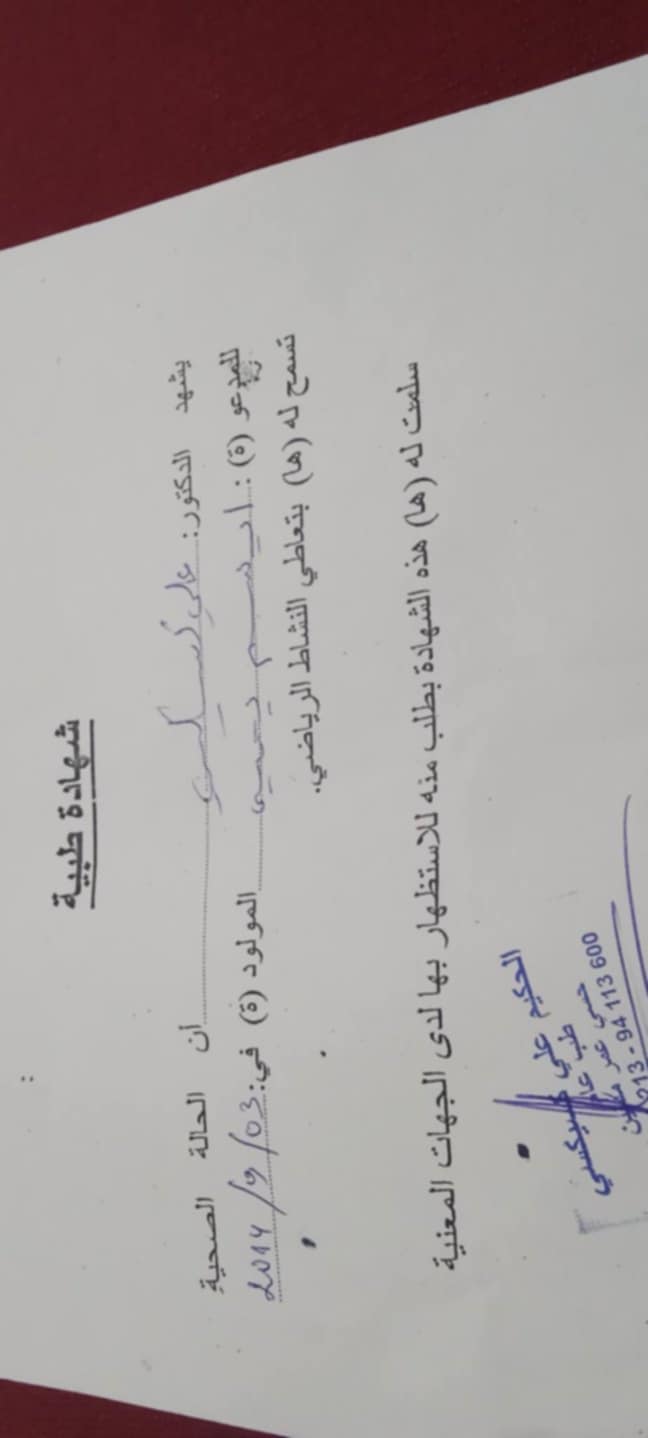 :
شهادة طبية
يشهد الدكتور: علي أن الحالة الصحية
للمدعو (ة): المولود (ة) في: 2014/9/03
تسمح له (ها) بتعاطي النشاط الرياضي.
سلمت له (ها) هذه الشهادة بطلب منه للاستظهار بها لدى الجهات المعنية
الحكيم علي
طب
حسي عمر
94 113 600